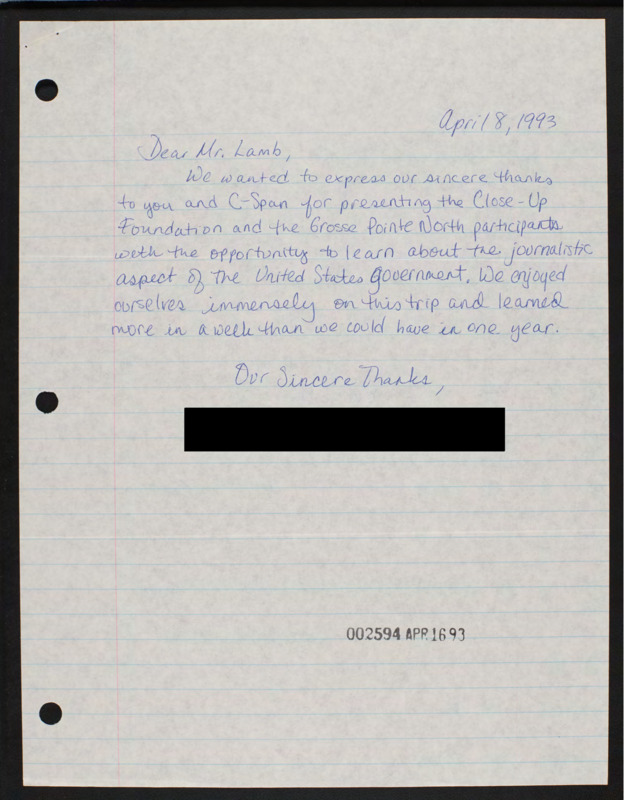 April 8, 1993
Dear Mr. Lamb,
We wanted to express our sincere thanks
to you and C-Span for presenting the Close-Up
Foundation and the Grosse Pointe North participants
with the opportunity to learn about the journalistic
aspect of the United States Government. We enjoyed
ourselves immensely on this trip and learned
more in a week than we could have in one year.
Our Sincere Thanks,
002594 APR 16 93